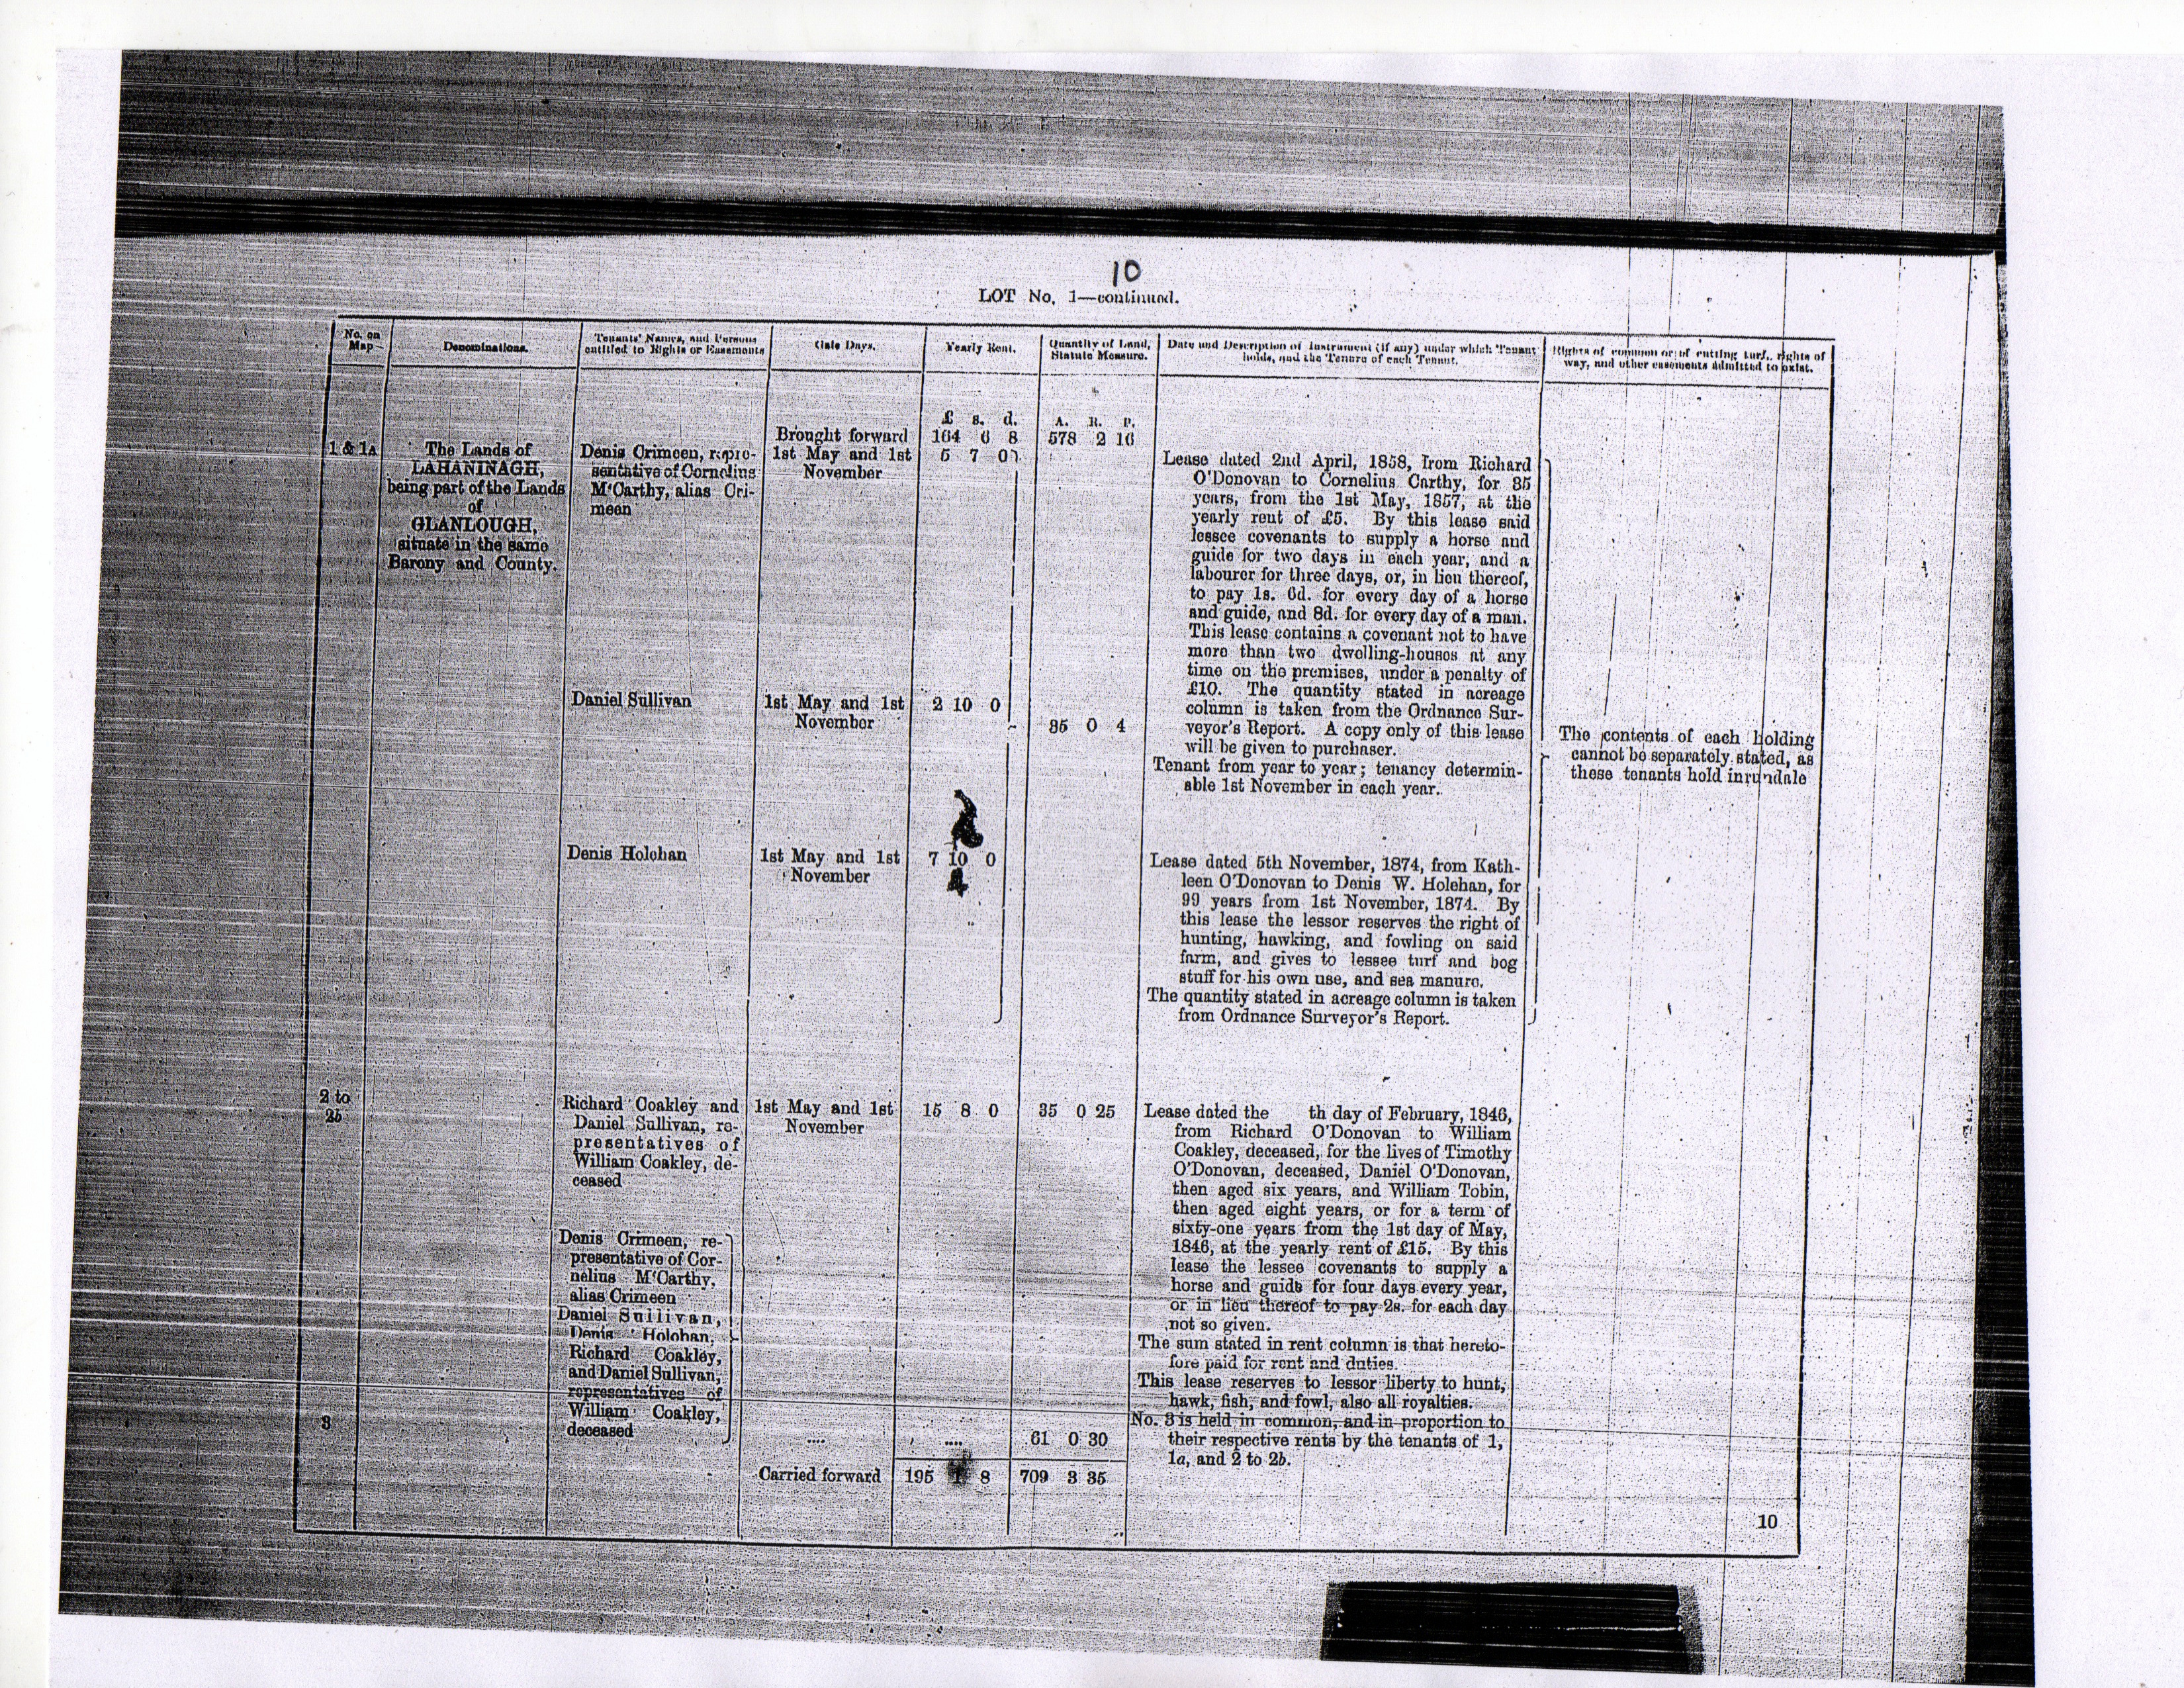 10
LOT No. 1—continued.
No. on
Map
Denominations.
Tenants' Names, and Persons
entitled to Rights or Easements
Gale Days.
Yearly Rent.
Quantity of Land,
Statute Measure.
Date and Description of Instrument (if any) under which Tenant
holds, and the Tenure of each Tenant.
Rights of common or of cutting turf, rights of
way, and other easements admitted to exist.
£ s. d.
A. R. P.
Brought forward 164 6 8 578 2 16
1 & 1A
The Lands of
LAHANINAGH,
being part of the Lands
of
GLANLOUGH,
situate in the same
Barony and County.
Denis Crimeen, repre-
sentative of Cornelius
M'Carthy, alias Cri-
meen
1st May and 1st
November
5 7 0
Lease dated 2nd April, 1858, from Richard
O'Donovan to Cornelius Carthy, for 35
years, from the 1st May, 1857, at the
yearly rent of £5. By this lease said
lessee covenants to supply a horse and
guide for two days in each year, and a
labourer for three days, or, in lieu thereof,
to pay 1s. 6d. for every day of a horse
and guide, and 8d. for every day of a man.
This lease contains a covenant not to have
more than two dwelling-houses at any
time on the premises, under a penalty of
£10. The quantity stated in acreage
column is taken from the Ordnance Sur-
veyor's Report. A copy only of this lease
will be given to purchaser.
Daniel Sullivan
1st May and 1st
November
2 10 0
35 0 4
Tenant from year to year; tenancy determin-
able 1st November in each year.
The contents of each holding
cannot be separately stated, as
these tenants hold in rundale
Denis Holohan
1st May and 1st
November
7 10 0
Lease dated 5th November, 1874, from Kath-
leen O'Donovan to Denis W. Holohan, for
99 years from 1st November, 1874. By
this lease the lessor reserves the right of
hunting, hawking, and fowling on said
farm, and gives to lessee turf and bog
stuff for his own use, and sea manure.
The quantity stated in acreage column is taken
from Ordnance Surveyor's Report.
2 to
2b
Richard Coakley and
Daniel Sullivan, re-
presentatives of
William Coakley, de-
ceased
1st May and 1st
November
15 8 0
35 0 25
Lease dated the th day of February, 1846,
from Richard O'Donovan to William
Coakley, deceased, for the lives of Timothy
O'Donovan, deceased, Daniel O'Donovan,
then aged six years, and William Tobin,
then aged eight years, or for a term of
sixty-one years from the 1st day of May,
1846, at the yearly rent of £15. By this
lease the lessee covenants to supply a
horse and guide for four days every year,
or in lieu thereof to pay 2s. for each day
not so given.
The sum stated in rent column is that hereto-
fore paid for rent and duties.
This lease reserves to lessor liberty to hunt,
hawk, fish, and fowl, also all royalties.
3
Denis Crimeen, re-
presentative of Cor-
nelius M'Carthy,
alias Crimeen
Daniel Sullivan,
Denis Holohan,
Richard Coakley,
and Daniel Sullivan,
representatives of
William Coakley,
deceased
.... .... 61 0 30
No. 3 is held in common, and in proportion to
their respective rents by the tenants of 1,
1a, and 2 to 2b.
Carried forward 195 1 8 709 3 35
10